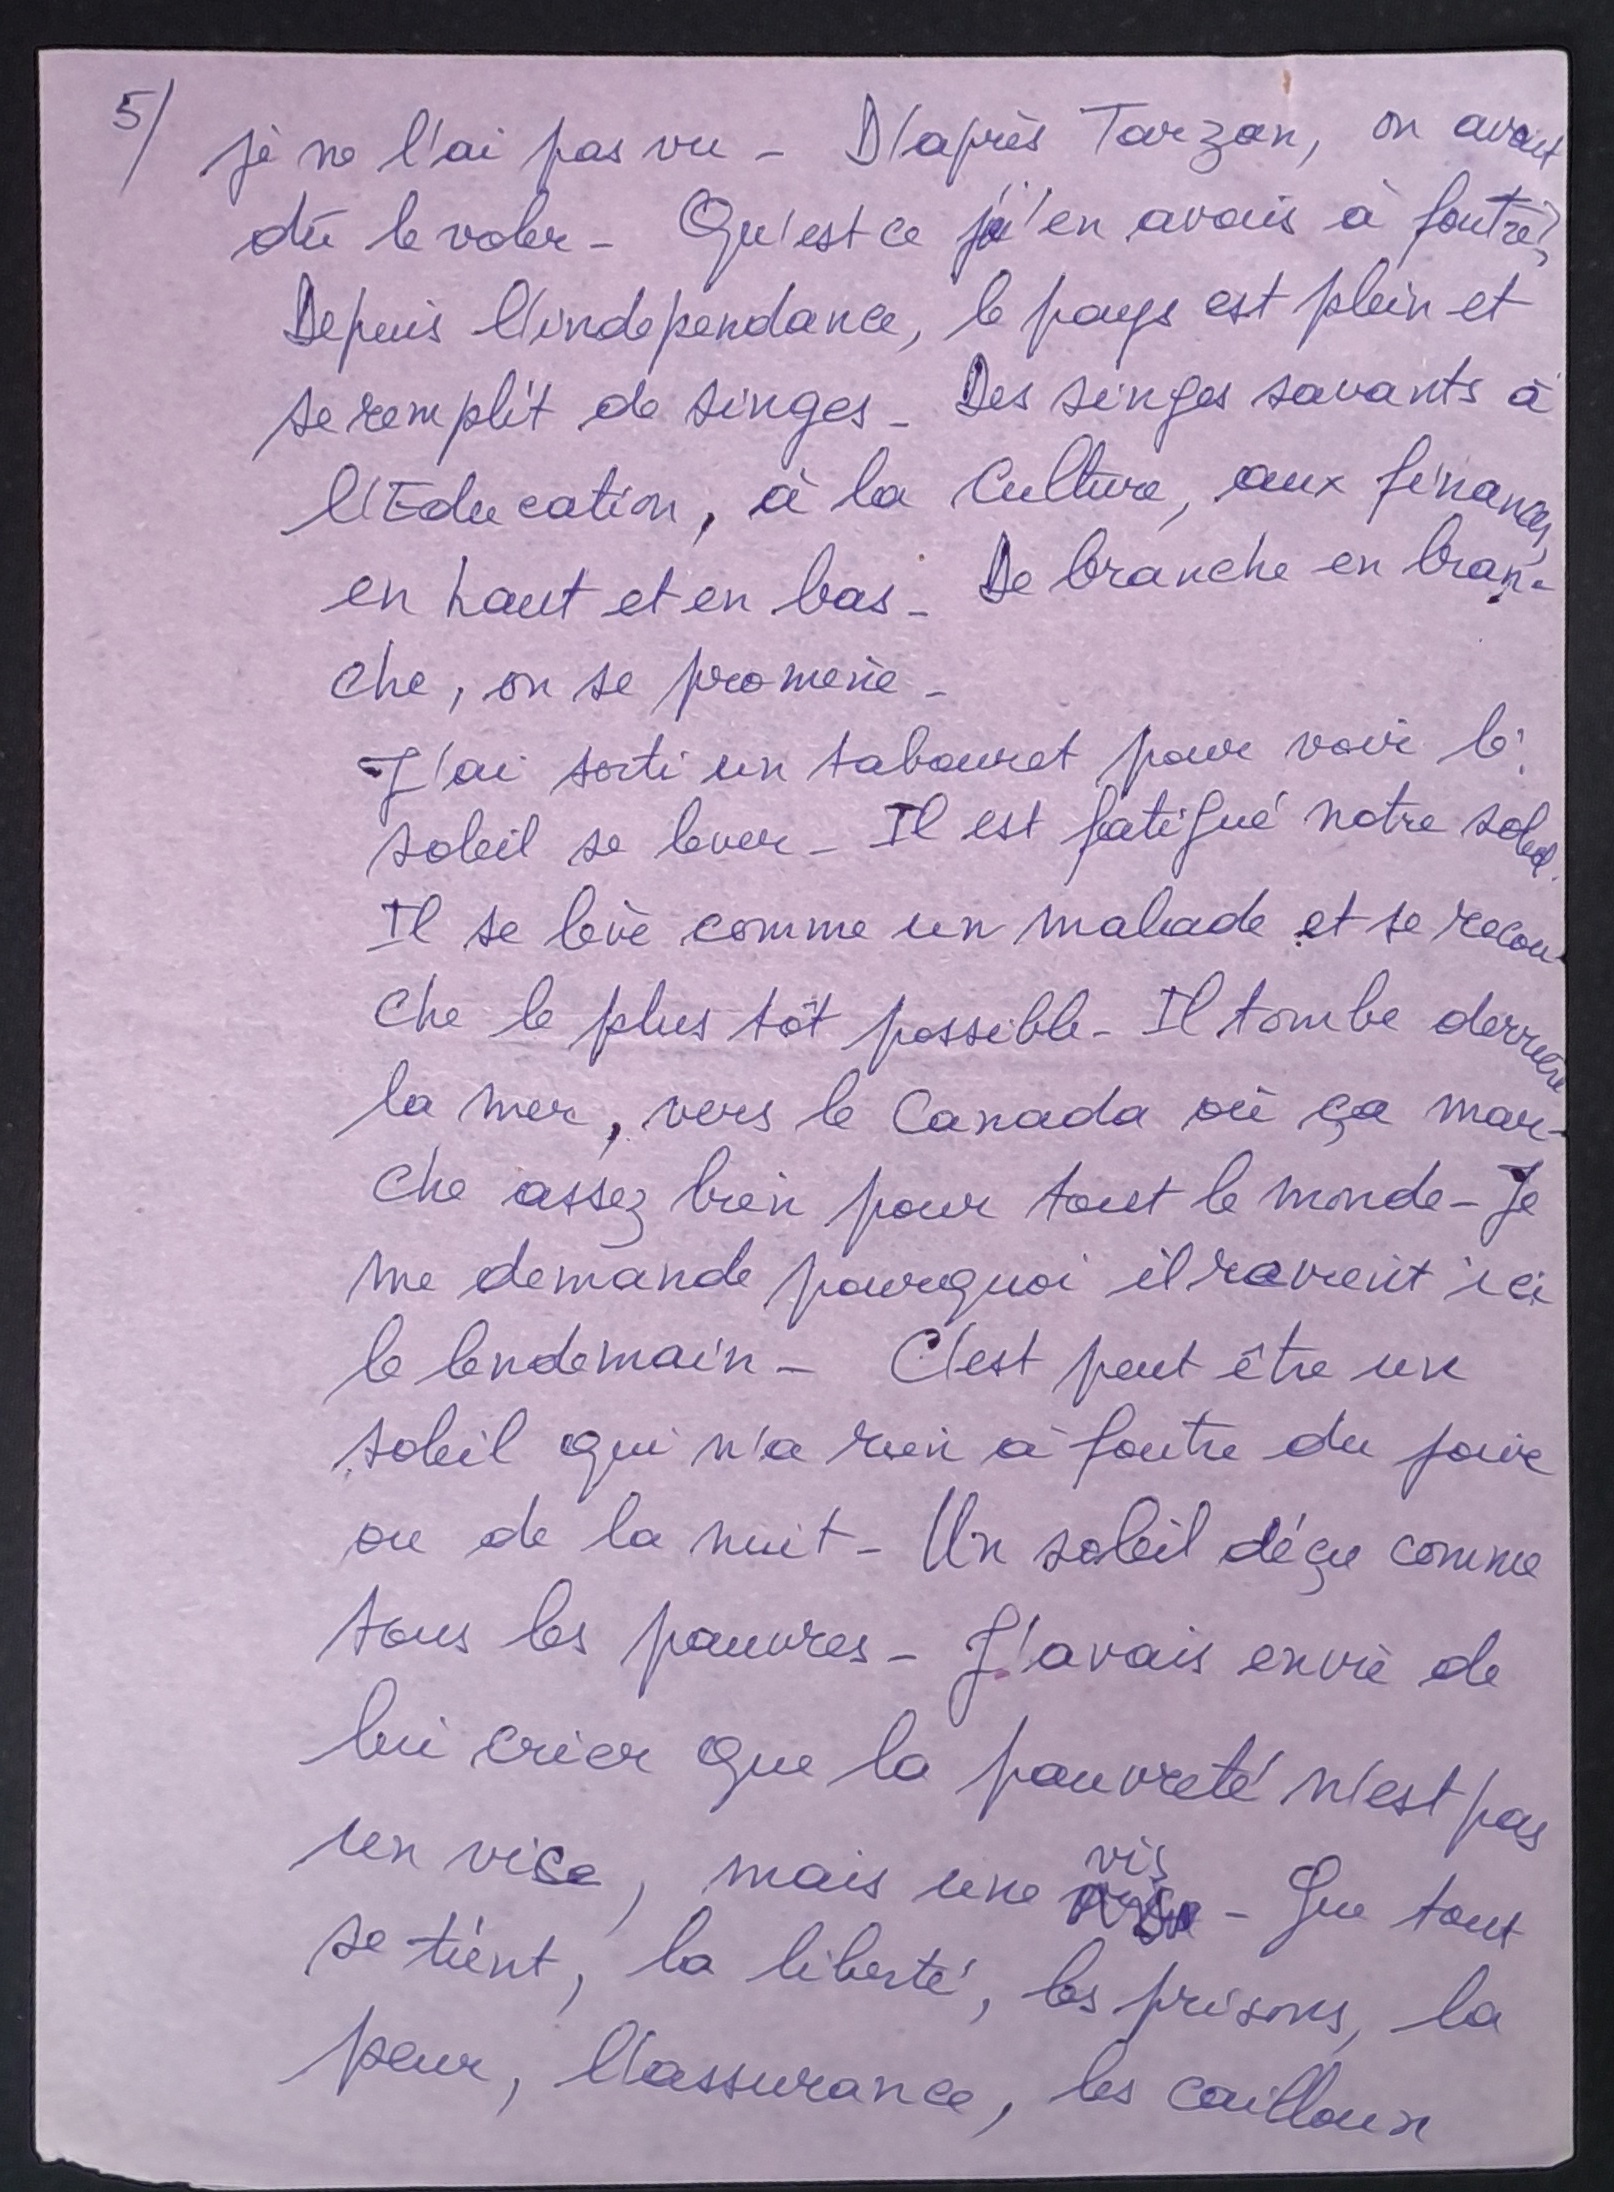 5/ je ne l'ai pas vu - D'après Tarzan, on avait
dû le voler - Qu'est ce j'en avais à foutre?
Depuis l'indépendance, le pays est plein et
se remplit de singes - Des singes savants à
l'Education, à la Culture, aux finances,
en haut et en bas - De branche en bran-
che, on se promène -
J'ai sorti un tabouret pour voir le
soleil se lever - Il est fatigué notre soleil.
Il se lève comme un malade et se recou-
che le plus tôt possible - Il tombe derrière
la mer, vers le Canada où ça mar-
che assez bien pour tout le monde - Je
me demande pourquoi il revient ici
le lendemain - C'est peut être un
soleil qui n'a rien à foutre du jour
ou de la nuit - Un soleil déçu comme
tous les pauvres - J'avais envie de
lui crier que la pauvreté n'est pas
un vice, mais une vis - Que tout
se tient, la liberté, les prisons, la
peur, l'assurance, les cailloux